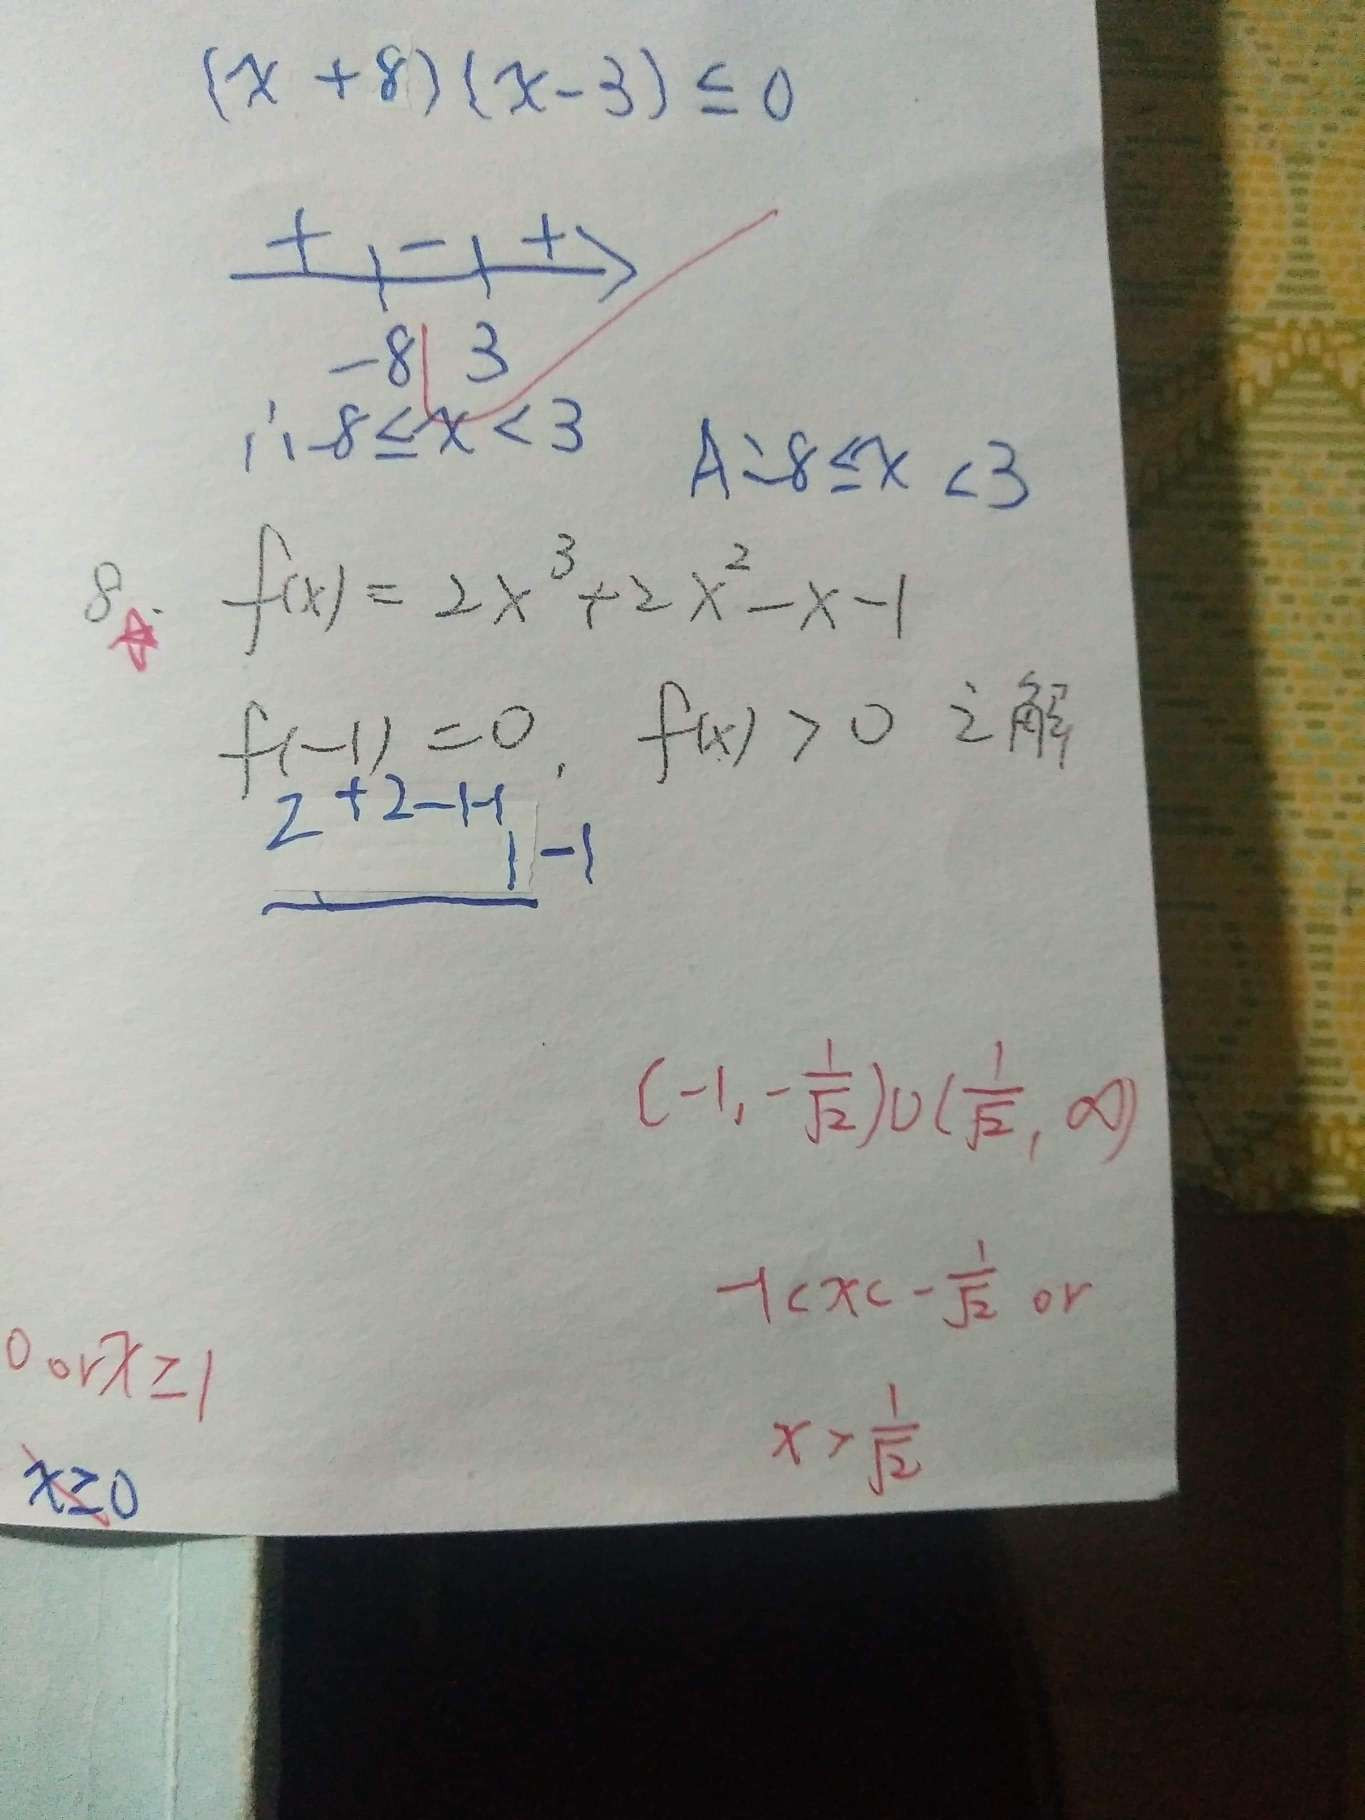 (x+8)(x-3)≤0
+ - +
-8 3
∴-8≤x<3 A:-8≤x<3
8. f(x)=2x³+2x²-x-1
f(-1)=0, f(x)>0之解
2+2-1-1
-1
(-1,-1/√2)∪(1/√2,∞)
-1<x<-1/√2 or
0 or x≥1
x>1/√2
x≥0